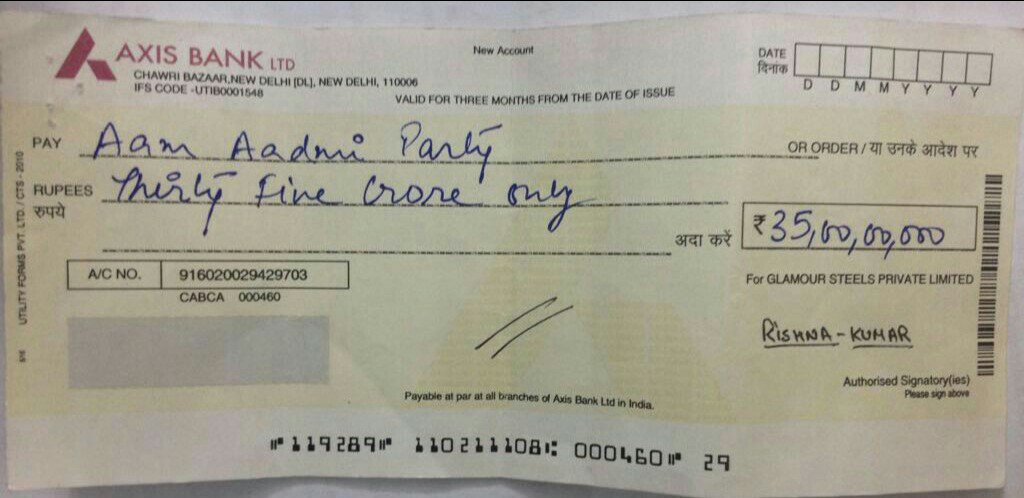 AXIS BANK LTD
CHAWRI BAZAAR,NEW DELHI [DL], NEW DELHI, 110006
IFS CODE -UTIB0001548
New Account
VALID FOR THREE MONTHS FROM THE DATE OF ISSUE
DATE
दिनांक
D D M M Y Y Y Y
PAY Aam Aadmi Party OR ORDER / या उनके आदेश पर
RUPEES Thirty Five Crore only
रुपये
अदा करें ₹ 35,00,00,000
A/C NO. 916020029429703
CABCA 000460
For GLAMOUR STEELS PRIVATE LIMITED
RISHNA - KUMAR
Authorised Signatory(ies)
Please sign above
Payable at par at all branches of Axis Bank Ltd in India.
⑈119289⑈ 110211108⑆ 000460⑈ 29
UTILITY FORMS PVT. LTD. / CTS - 2010